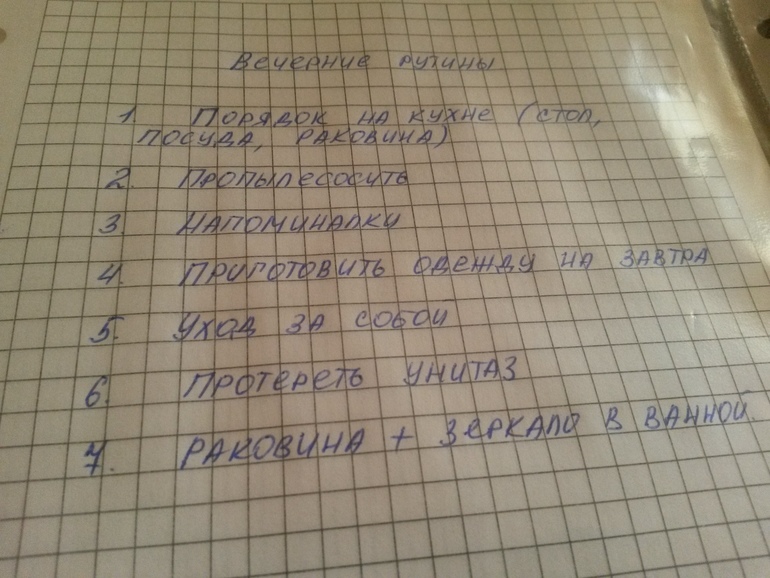 Вечерние рутины
1. Порядок на кухне (стол,
посуда, раковина)
2. Пропылесосить
3. Напоминалки
4. Приготовить одежду на завтра
5. Уход за собой
6. Протереть унитаз
7. Раковина + зеркало в ванной